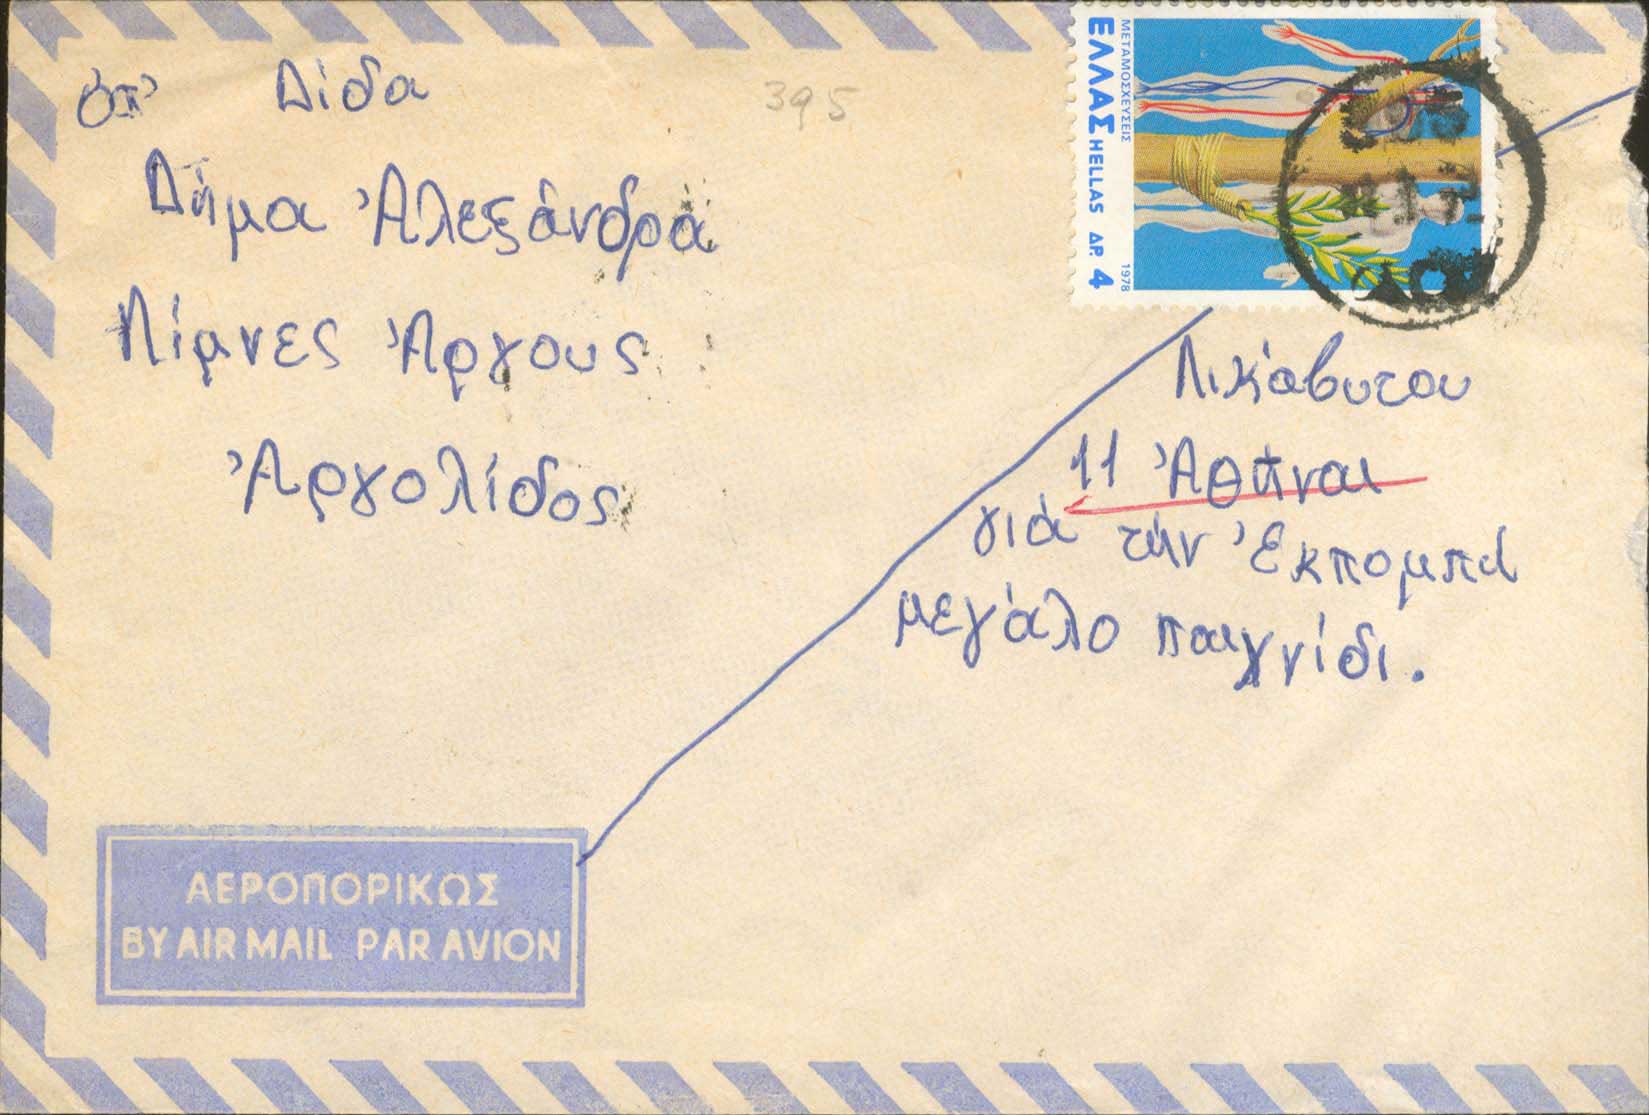 ὁπ' Δίδα
395
Δήμα Ἀλεξάνδρα
Λίμνες Ἄργους
Ἀργολίδος
ΜΕΤΑΜΟΣΧΕΥΣΕΙΣ 1978
ΕΛΛΑΣ HELLAS ΔΡ. 4
Λικάβυτου
11 Ἀθῆναι
γιά τήν Ἐκπομπή
μεγάλο παιγνίδι.
ΑΕΡΟΠΟΡΙΚΩΣ
BY AIR MAIL PAR AVION